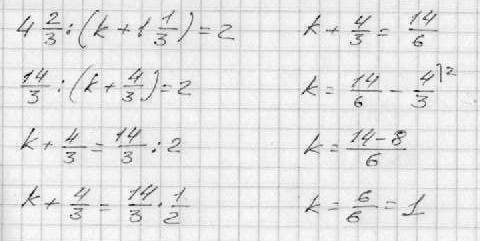 4 2/3 : (k + 1 1/3) = 2
14/3 : (k + 4/3) = 2
k + 4/3 = 14/3 : 2
k + 4/3 = 14/3 · 1/2
k + 4/3 = 14/6
k = 14/6 - 4/3 ⁾²
k = 14-8/6
k = 6/6 = 1